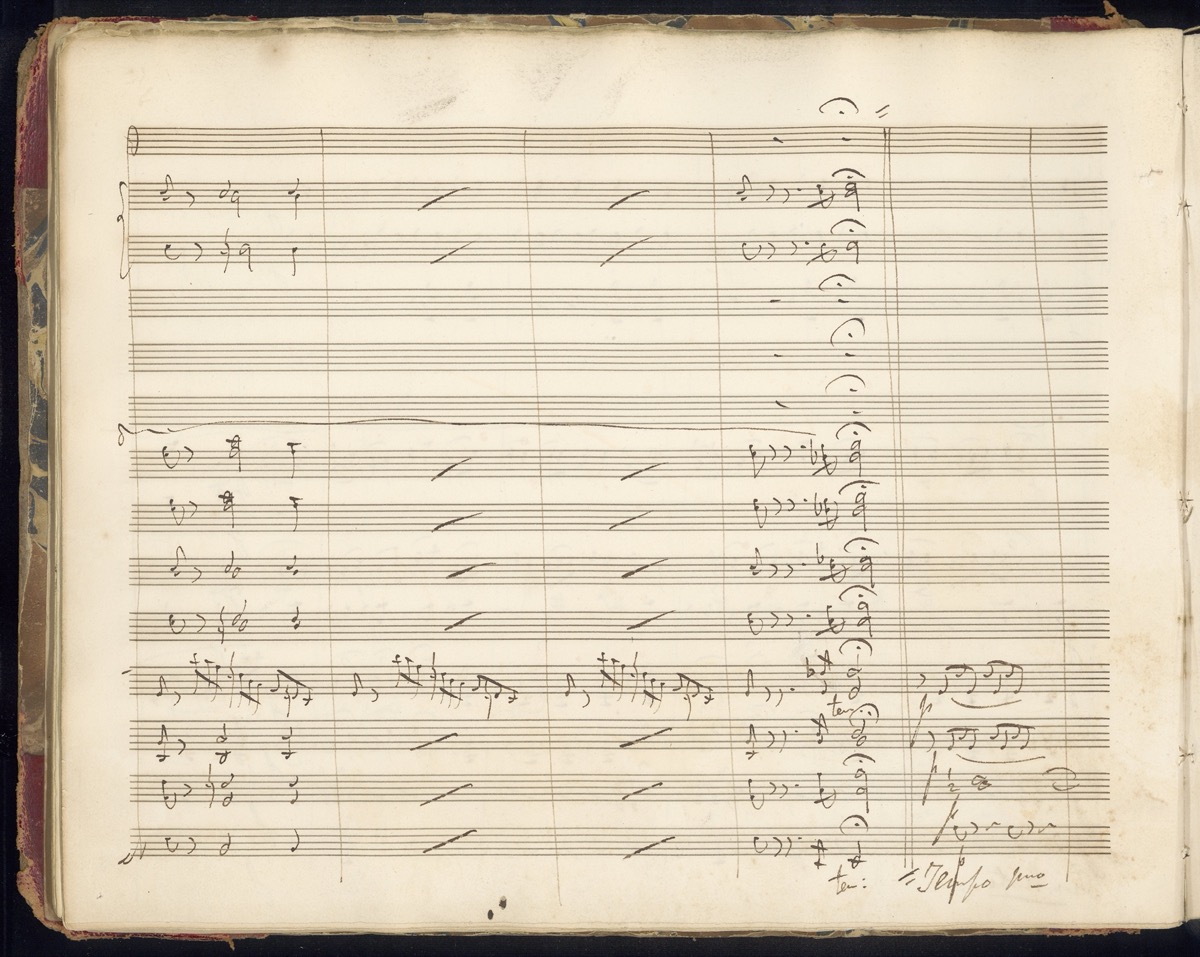 ten:
p
ten: Tempo pmo